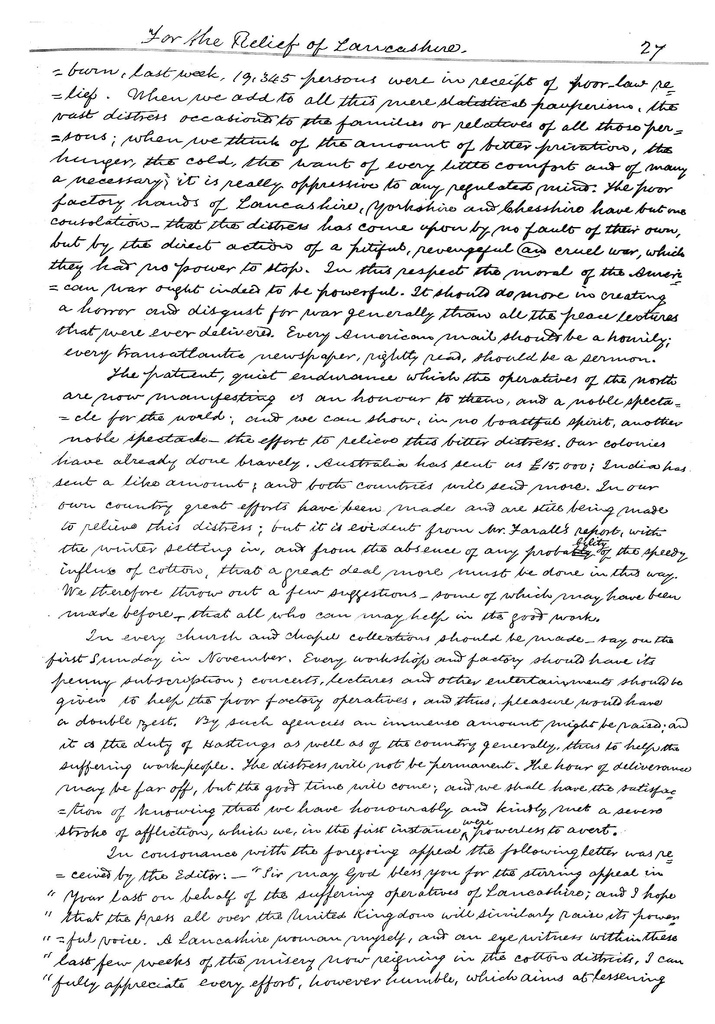 For the Relief of Lancashire. 27
=burn, last week, 19,345 persons were in receipt of poor-law re=
=lief. When we add to all this mere statistical pauperism, the
vast distress occasioned to the families or relatives of all those per=
=sons; when we think of the amount of bitter privation, the
hunger, the cold, the want of every little comfort and of many
a necessary; it is really oppressive to any regulated mind. The poor
factory hands of Lancashire, Yorkshire and Chesshire have but one
consolation - that the distress has come upon by no fault of their own,
but by the direct action of a pitiful, revengeful an cruel war, which
they had no power to stop. In this respect the moral of the Ameri=
=can war ought indeed to be powerful. It should do more in creating
a horror and disgust for war generally than all the peace lectures
that were ever delivered. Every American mail should be a homily;
every transatlantic newspaper, rightly read, should be a sermon.
The patient, quiet endurance which the operatives of the north
are now manifesting is an honour to them, and a noble specta=
=cle for the world; and we can show, in no boastful spirit, another
noble spectacle - the effort to relieve this bitter distress. Our colonies
have already done bravely. Australia has sent us £15,000; India has
sent a like amount; and both countries will send more. In our
own country great efforts have been made and are still being made
to relieve this distress; but it is evident from Mr. Farall's report, with
the winter setting in, and from the absence of any probability of the speedy
influx of cotton, that a great deal more must be done in this way.
We therefore throw out a few suggestions - some of which may have been
made before - that all who can may help in the good work.
In every church and chapel collections should be made - say on the
first Sunday in November. Every workshop and factory should have its
penny subscription; concerts, lectures and other entertainments should be
given to help the poor factory operatives, and thus, pleasure would have
a double zest. By such agencies an immense amount might be raised; and
it is the duty of Hastings as well as of the country generally, thus to help the
suffering work-people. The distress will not be permanent. The hour of deliverance
may be far off, but the good time will come; and we shall have the satisfac=
=tion of knowing that we have honourably and kindly met a severe
stroke of affliction, which we, in the first instance were powerless to avert.
In consonance with the foregoing appeal the following letter was re=
=ceived by the Editor: - "Sir may God bless you for the stirring appeal in
" Your last on behalf of the suffering operatives of Lancashire; and I hope
" that the Press all over the United Kingdom will similarly raise its power
" =ful voice. A Lancashire woman myself, and an eye witness within these
" last few weeks of the misery now reigning in the cotton districts, I can
" fully appreciate every effort, however humble, which aims at lessening